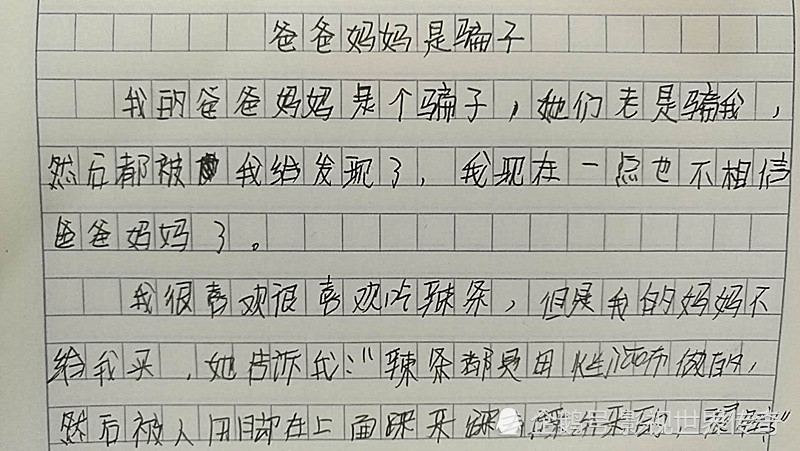 爸爸妈妈是骗子
我的爸爸妈妈是个骗子，她们老是骗我，
然后都被我给发现了，我现在一点也不相信
爸爸妈妈了。
我很喜欢很喜欢吃辣条，但是我的妈妈不
给我买，她告诉我："辣条都是用做的，
然后被人用脚在上面踩来踩
企鹅号